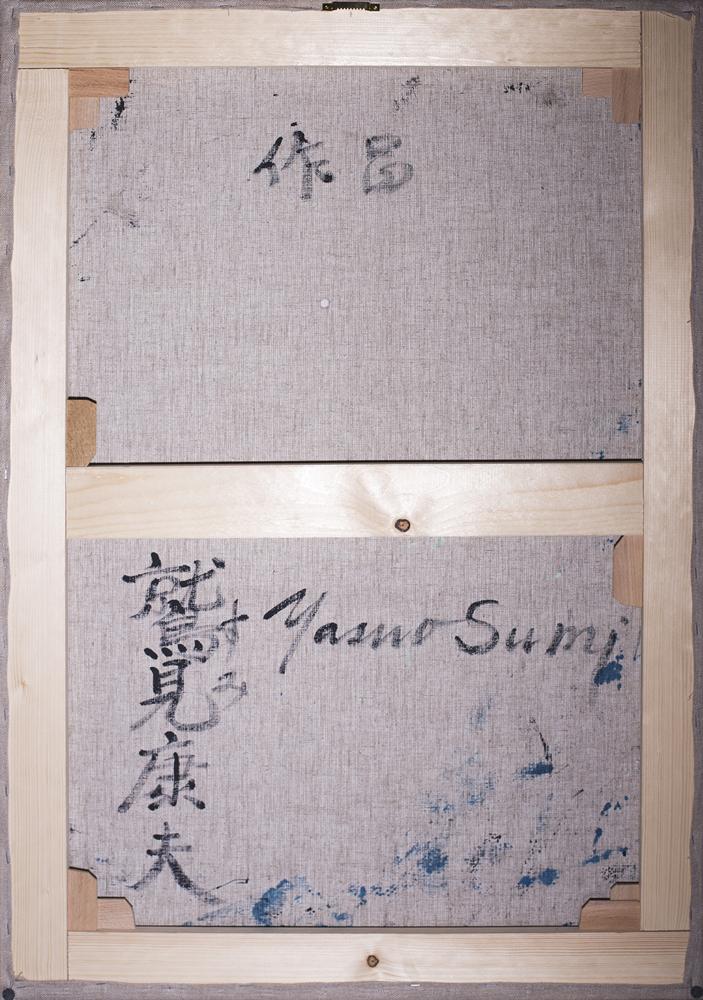 作品
鷲見康夫
すみ
Yasuo Sumi